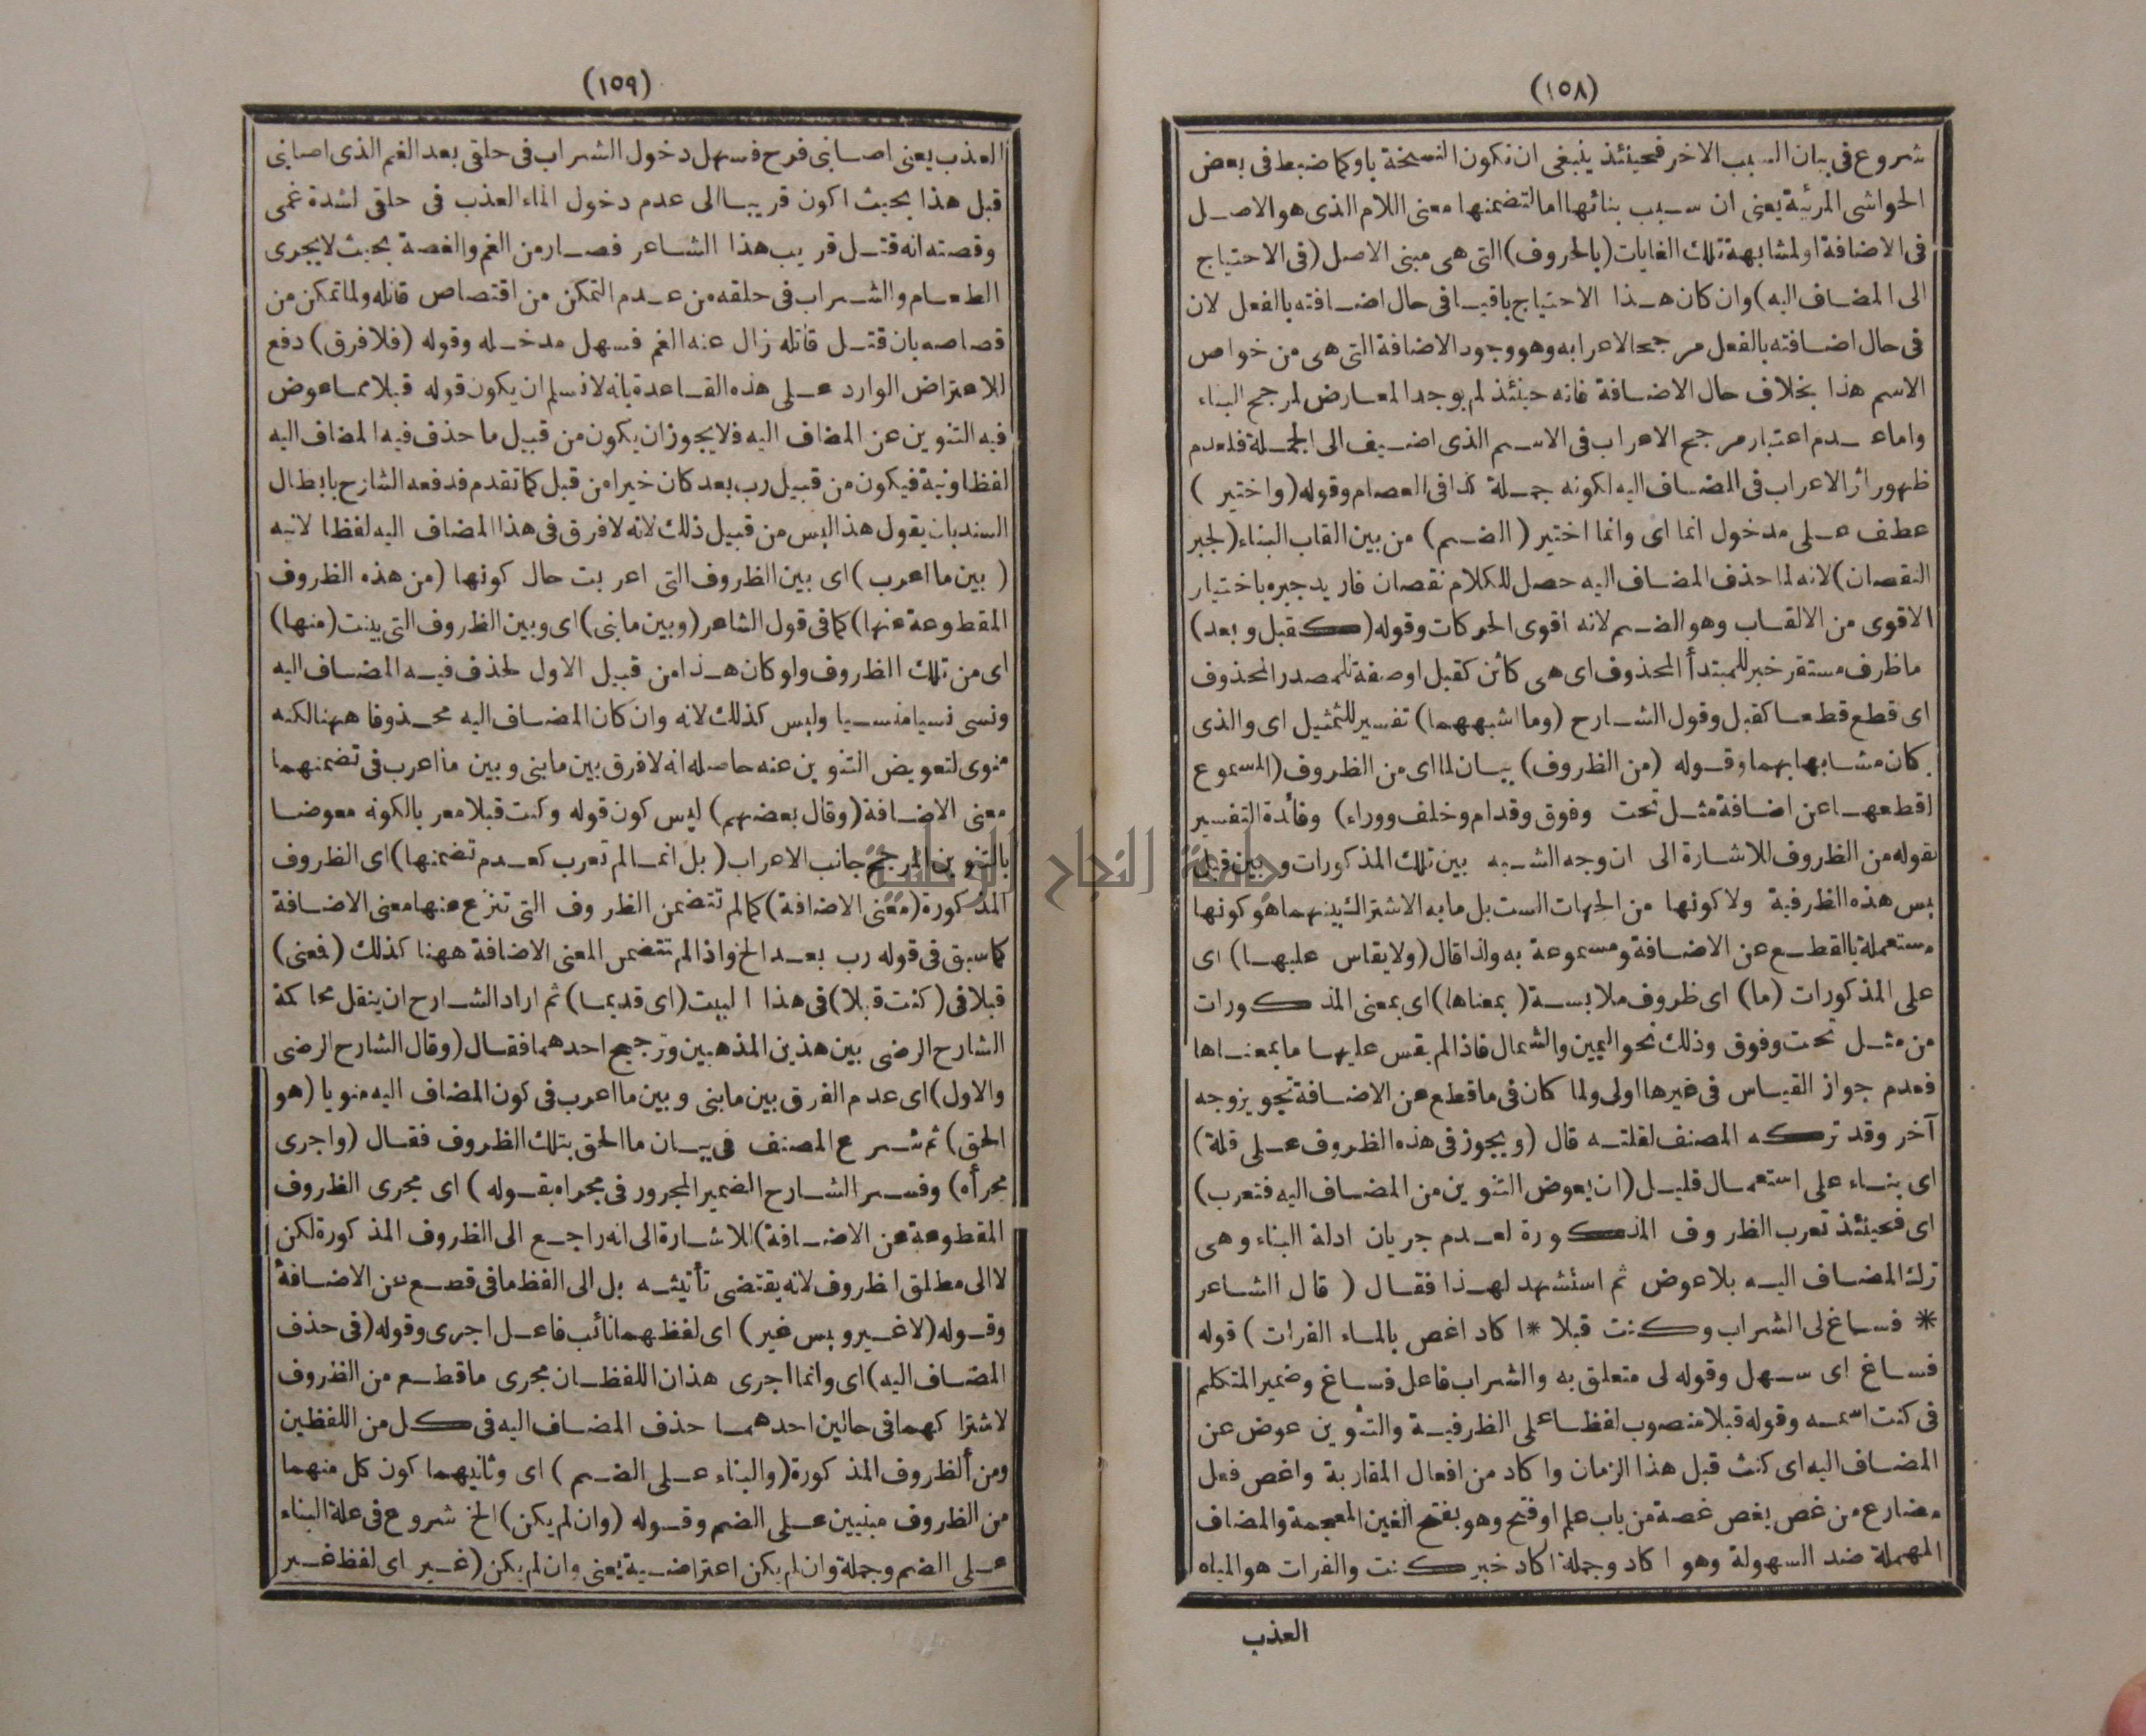 (١٥٨)
شروع في بيان السبب الاخر فحينئذ ينبغى ان تكون النسخة باو كما ضبط فى بعض
الحواشى المرئية يعنى ان سبب بنائها اما لتضمنها معنى اللام الذى هو الاصل
فى الاضافة او لمشابهة تلك الغايات (بالحروف) التى هى مبنى الاصل (فى الاحتياج
الى المضاف اليه) وان كان هذا الاحتياج باقيا فى حال اضافته بالفعل لان
فى حال اضافته بالفعل مرجح الاعرابه وهو وجود الاضافة التى هى من خواص
الاسم هذا بخلاف حال الاضافة فانه حينئذ لم يوجد المعارض لمرجح البناء
واما عدم اعتبار مرجح الاعراب فى الاسم الذى اضيف الى الجملة فلعدم
ظهور اثر الاعراب فى المضاف اليه لكونه جملة كذا فى العصام وقوله (واختير)
عطف على مدخول انما اى وانما اختير (الضم) من بين القاب البناء (لجبر
النقصان) لانه لما حذف المضاف اليه حصل للكلام نقصان فاريد جبره باختيار
الاقوى من الالقاب وهو الضم لانه اقوى الحركات وقوله (كقبل وبعد)
ما ظرف مستقر خبر للمبتدأ المحذوف اى هى كائن كقبل او صفة للمصدر المحذوف
اى قطع قطعا كقبل وقول الشارح (وما اشبههما) تفسير للتمثيل اى والذى
كان مشابها بهما وقوله (من الظروف) بيان لما اى من الظروف (المسموع
اقطعها عن اضافة مثل تحت وفوق وقدام وخلف ووراء) وفائدة التفسير
بقوله من الظروف للاشارة الى ان وجه الشبه بين تلك المذكورات وبين قبل
ليس هذه الظرفية ولا كونها من الجهات الست بل ما به الاشتراك بينهما هو كونها
مستعملة بالقطع عن الاضافة ومسموعة به ولذا قال (ولا يقاس عليها) اى
على المذكورات (ما) اى ظروف ملابسة (بمعناها) اى بمعنى المذكورات
من مثل تحت وفوق وذلك نحو اليمين والشمال فاذا لم يقس عليها ما بمعناها
فعدم جواز القياس فى غيرها اولى ولما كان فى ما قطع عن الاضافة تجويز وجه
آخر وقد تركه المصنف لقلته قال (ويجوز فى هذه الظروف على قلة)
اى بناء على استعمال قليل (ان يعوض التنوين من المضاف اليه فتعرب)
اى فحينئذ تعرب الظروف المذكورة لعدم جريان ادلة البناء وهى
ترك المضاف اليه بلا عوض ثم استشهد لهذا فقال (قال الشاعر
* فساغ لى الشراب وكنت قبلا * اكاد اغص بالماء الفرات) قوله
فساغ اى سهل وقوله لى متعلق به والشراب فاعل فساغ وضمير المتكلم
فى كنت اسمه وقوله قبلا منصوب لفظا على الظرفية والتنوين عوض عن
المضاف اليه اى كنت قبل هذا الزمان واكاد من افعال المقاربة واغص فعل
مضارع من غص يغص غصة من باب علم او فتح وهو بفتح الغين المعجمة والمضاف
المهملة ضد السهولة وهو اكاد وجملة اكاد خبر كنت والفرات هو المياه
العذب
(١٥٩)
العذب يعنى اصابنى فرح فسهل دخول الشراب فى حلقى بعد الغم الذى اصابنى
قبل هذا بحيث اكون قريبا الى عدم دخول الماء العذب فى حلقى لشدة غمى
وقصته انه قتل قريب هذا الشاعر فصار من الغم والغصة بحيث لا يجرى
الطعام والشراب فى حلقه من عدم التمكن من اقتصاص قاتله ولما تمكن من
قصاصه بان قتل قاتله زال عنه الغم فسهل مدخله وقوله (فلا فرق) دفع
للاعتراض الوارد على هذه القاعدة بانه لا نسلم ان يكون قوله قبلا مما عوض
فيه التنوين عن المضاف اليه فلا يجوز ان يكون من قبيل ما حذف فيه المضاف اليه
لفظا ونية فيكون من قبيل رب بعد كان خيرا من قبل كما تقدم فدفعه الشارح بابطال
السند بان يقول هذا ليس من قبيل ذلك لانه لا فرق فى هذا المضاف اليه لفظا لا نيه
(بين ما اعرب) اى بين الظروف التى اعربت حال كونها (من هذه الظروف
المقطوعة عنها) كما فى قول الشاعر (وبين ما بنى) اى وبين الظروف التى بينت (منها)
اى من تلك الظروف ولو كان هذا من قبيل الاول لحذف فيه المضاف اليه
ونسى نسيا منسيا وليس كذلك لانه وان كان المضاف اليه محذوفا ههنا لكنه
منوى لتعويض التنوين عنه حاصله انه لا فرق بين ما بنى وبين ما اعرب فى تضمنهما
معنى الاضافة (وقال بعضهم) ليس كون قوله وكنت قبلا معربا لكونه معوضا
بالتنوين المرجح جانب الاعراب (بل انما لم تعرب كعدم تضمنها) اى الظروف
المذكورة (معنى الاضافة) كما لم تتضمن الظروف التى تنزع عنها معنى الاضافة
كما سبق فى قوله رب بعد الخ واذا لم تتضمن المعنى الاضافة ههنا كذلك (فمعنى)
قبلا فى (كنت قبلا) فى هذا البيت (اى قديما) ثم اراد الشارح ان ينقل محاكمة
الشارح الرضى بين هذين المذهبين وترجيح احدهما فقال (وقال الشارح الرضى
والاول) اى عدم الفرق بين ما بنى وبين ما اعرب فى كون المضاف اليه منويا (هو
الحق) ثم شرع المصنف فى بيان ما الحق بتلك الظروف فقال (واجرى
مجرأه) وفسر الشارح الضمير المجرور فى مجراه بقوله) اى مجرى الظروف
المقطوعة عن الاضافة) للاشارة الى انه راجع الى الظروف المذكورة لكن
لا الى مطلق الظروف لانه يقتضى تأنيثه بل الى الفظ ما فى قصع عن الاضافة
وقوله (لا غير وليس غير) اى لفظهما نائب فاعل اجرى وقوله (فى حذف
المضاف اليه) اى وانما اجرى هذان اللفظان مجرى ما قطع من الظروف
لاشتراكهما فى حالين احدهما حذف المضاف اليه فى كل من اللفظين
ومن الظروف المذكورة (والبناء على الضم) اى وثانيهما كون كل منهما
من الظروف مبنيين على الضم وقوله (وان لم يكن) الخ شروع فى علة البناء
على الضم وجملة وان لم يكن اعتراضية يعنى وان لم يكن (غير اى لفظ غير
جامعة النجاح الوطنية